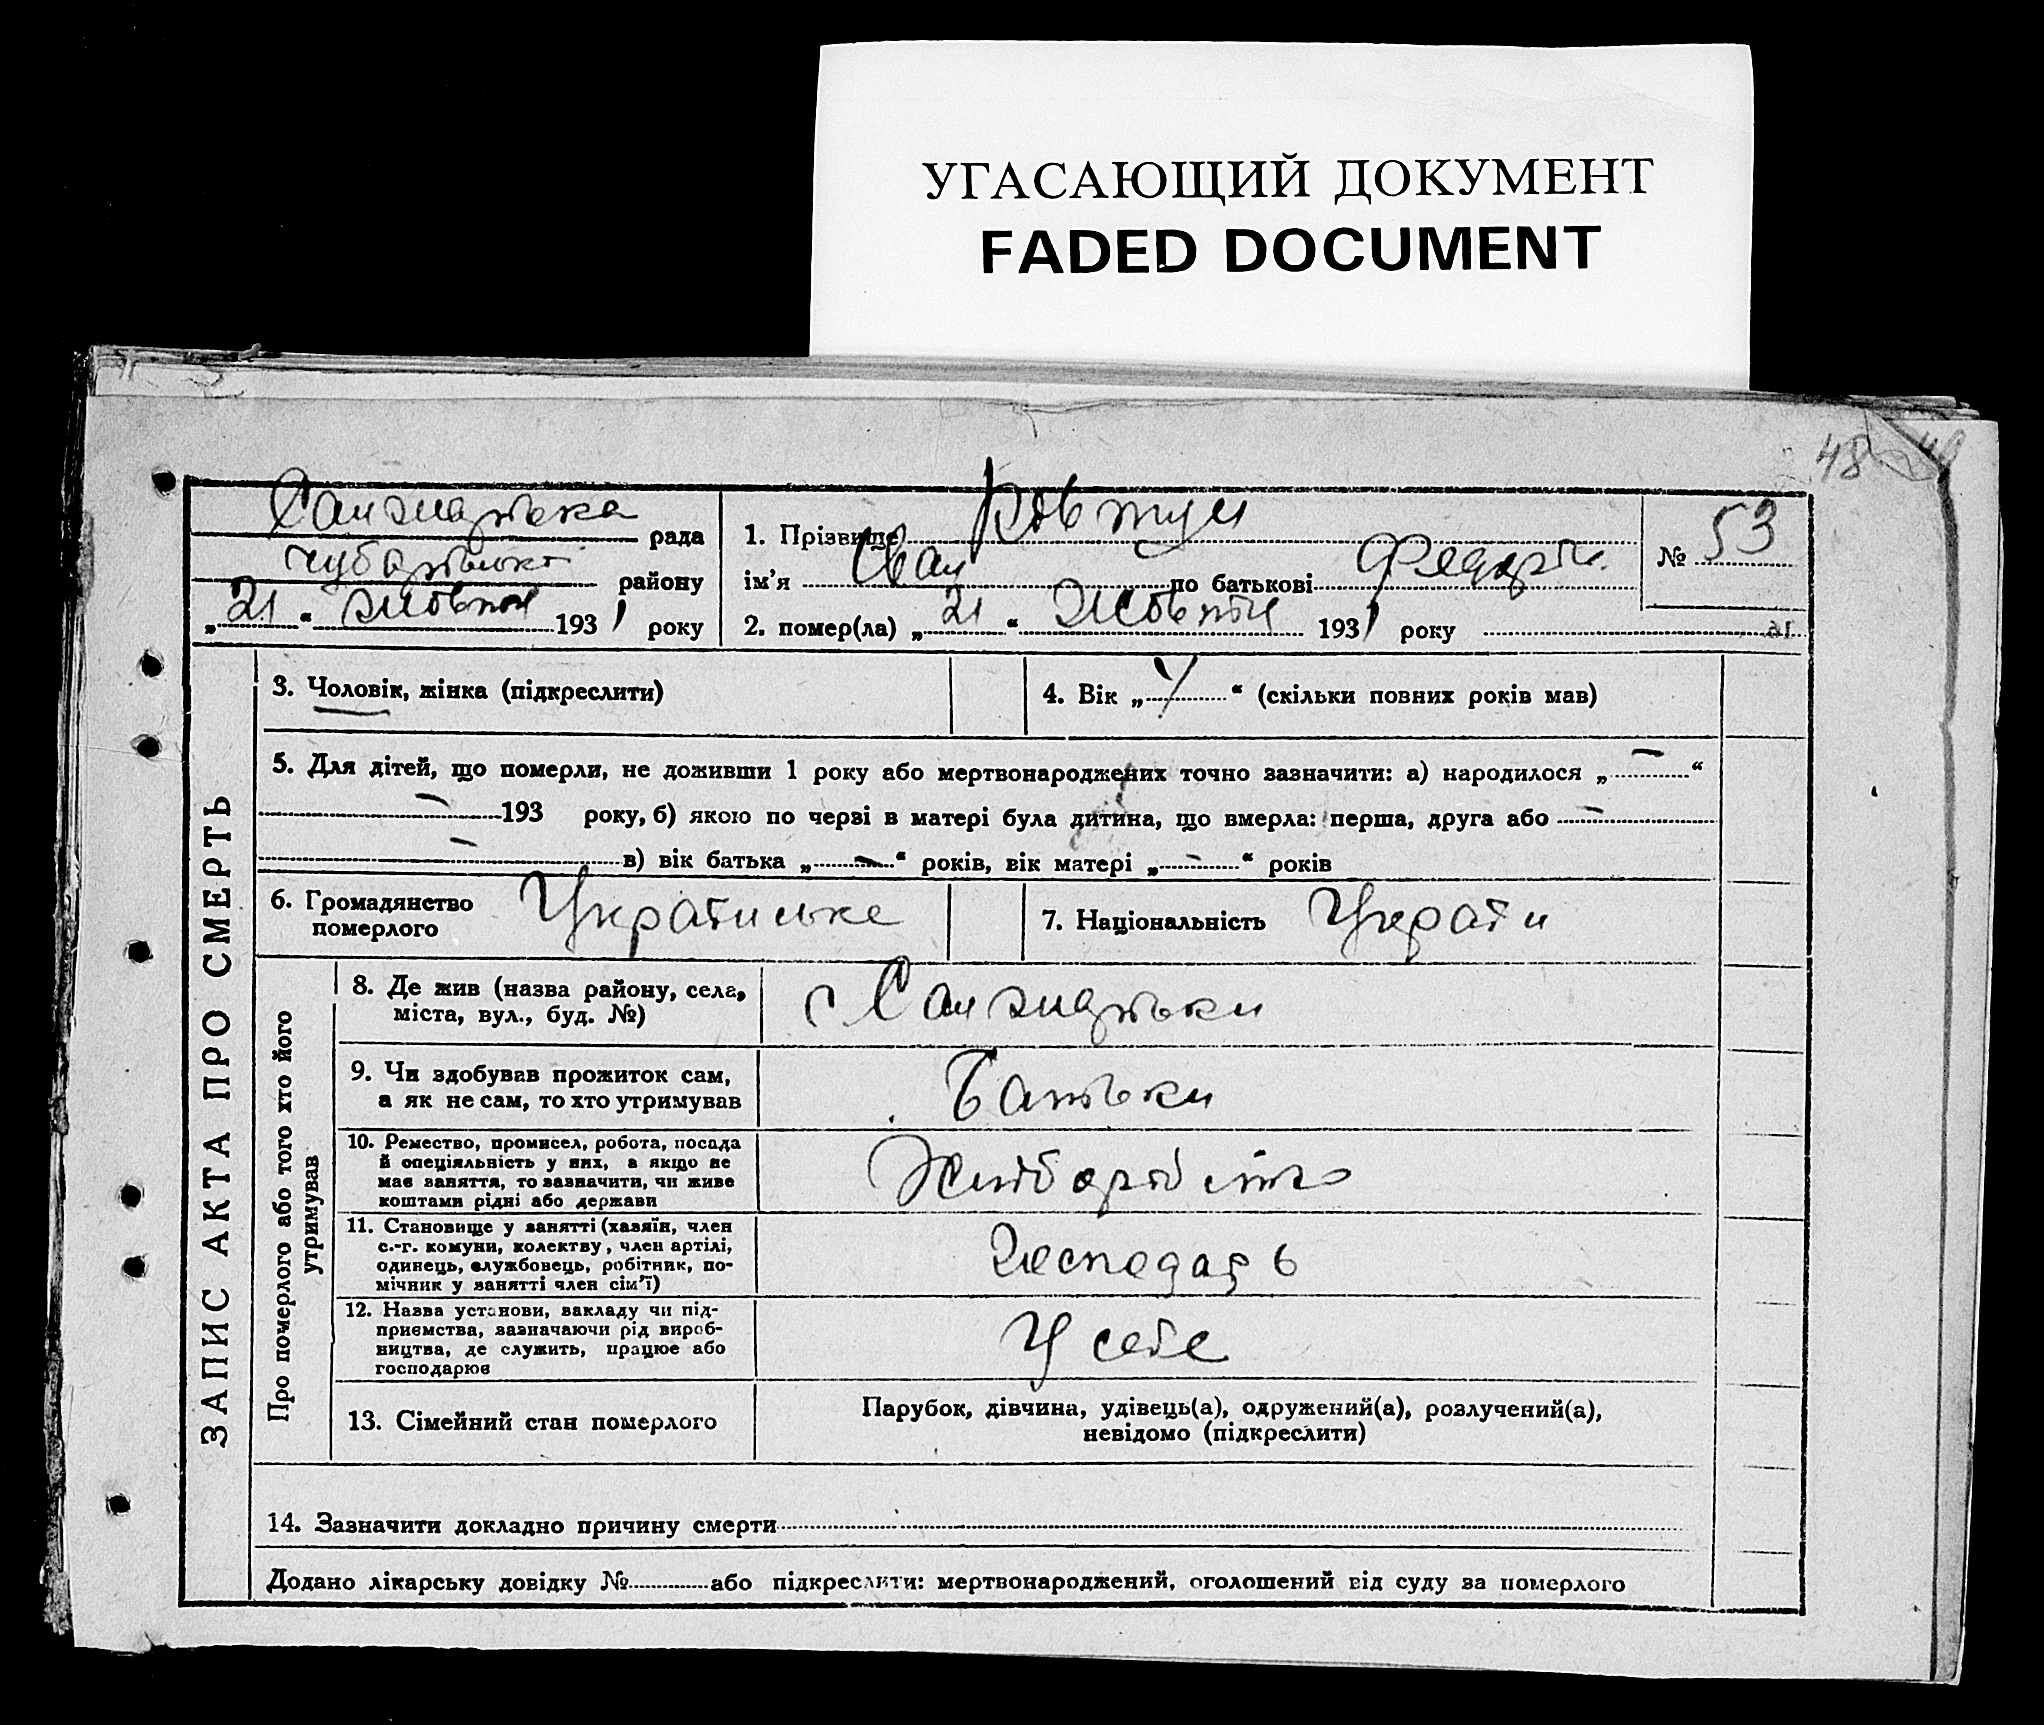 УГАСАЮЩИЙ ДОКУМЕНТ
FADED DOCUMENT
48
ЗАПИС АКТА ПРО СМЕРТЬ
рада
району
„21“ жовтня 1931 року
1. Прізвище Ковтун
ім’я Іван по батькові
№ 53
2. помер(ла) „21“ Жовтня 1931 року
3. Чоловік, жінка (підкреслити)
4. Вік „ “ (скільки повних років мав)
5. Для дітей, що померли, не доживши 1 року або мертвонароджених точно зазначити: а) народилося „ – “
– 193 року, б) якою по черзі в матері була дитина, що вмерла: перша, друга або –
– в) вік батька „ – “ років, вік матері „ – “ років
6. Громадянство
померлого
Українське
7. Національність Україн
Про померлого або того хто його
утримував
8. Де жив (назва району, села,
міста, вул., буд. №)
9. Чи здобував прожиток сам,
а як не сам, то хто утримував
Батьки
10. Ремество, промисел, робота, посада
й спеціяльність у них, а якщо не
має заняття, то зазначити, чи живе
коштами рідні або держави
Хліборобство
11. Становище у занятті (хазяїн, член
с.-г. комуни, колектву, член артілі,
одинець, службовець, робітник, по-
мічник у занятті член сім’ї)
Господарь
12. Назва установи, закладу чи під-
приємства, зазначаючи рід вироб-
ництва, де служить, працює або
господарює
У себе
13. Сімейний стан померлого
Парубок, дівчина, удівець(а), одружений(а), розлучений(а),
невідомо (підкреслити)
14. Зазначити докладно причину смерти
Додано лікарську довідку № або підкреслити: мертвонароджений, оголошений від суду за померлого